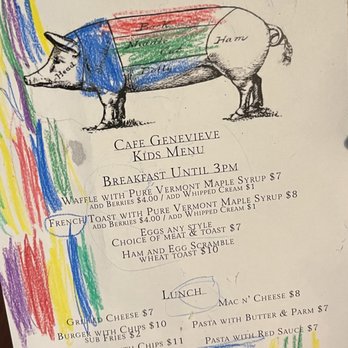 Head
Ham
Cafe Genevieve
Kids Menu
Breakfast Until 3pm
Waffle with Pure Vermont Maple Syrup $7
add Berries $4.00 / add Whipped Cream $1
French Toast with Pure Vermont Maple Syrup $8
add Berries $4.00 / add Whipped Cream $1
Eggs any style
Choice of meat & toast $7
Ham and Egg Scramble
wheat toast $10
Lunch
Grilled Cheese $7
Mac n' Cheese $8
Burger with Chips $10
sub Fries $2
Pasta with Butter & Parm $7
with Chips $11
Pasta with Red Sauce $7